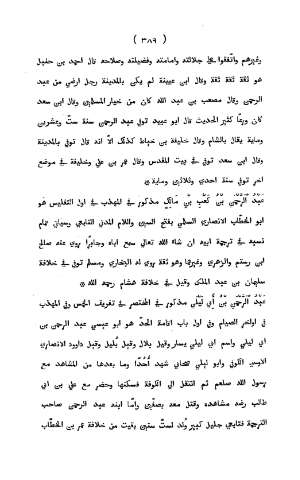 ( ٣٨٩ )
وغيرهم واتفقوا على جلالته وامامته وفضيلته وصلاحه قال احمد بن حنبل
هو ثقة ثقة وقال ابن عيينة لم يكن بالمدينة رجل ارضى من عبد
الرحمن وقال مصعب بن عبد الله كان من خيار المسلمين وقال ابن سعد
كان ورعا كثير الحديث قال ابو عبيد توفى سنة ست وعشرين
وماية يقال بالشام وقال خليفة بن خياط كذلك الا انه قال توفى بالمدينة
وقال ابن سعد توفى فى بيت المقدس وقال عمر بن على وخليفة فى موضع
اخر توفى سنة احدى وثلاثين وماية ٭
عبد الرحمن بن كعب بن مالك مذكور فى المهذب فى اول التفليس هو
ابو الخطاب الانصارى السلمى بفتح السين واللام المدنى التابعى وسياتى تمام
نسبه فى ترجمة ابيه ان شاء الله تعالى سمع اباه وجابرا روى عنه صالح
ابن رستم والزهرى وغيرهما وهو ثقة روى له البخارى ومسلم توفى فى خلافة
سليمان بن عبد الملك وقيل فى خلافة هشام رحمه الله ٭
عبد الرحمن بن أبى ليلى مذكور فى المختصر فى تعريف الخمس وفى المهذب
فى اواخر الصيام وفى اول باب اقامة الحد هو ابو عيسى عبد الرحمن بن
ابى ليلى واسم ابى ليلى يسار وقيل بلال وقيل بليل وقيل داوود الانصارى
الاوسى الكوفى وابو ليلى صحابى شهد أحدا وما بعدها من المشاهد مع
رسول الله صلعم ثم انتقل الى الكوفة فسكنها وحضر مع على بن ابى
طالب رضه مشاهده وقتل معه بصفين واما ابنه عبد الرحمن صاحب
الترجمة فتابعى جليل كبير ولد لست سنين بقيت من خلافة عمر بن الخطاب